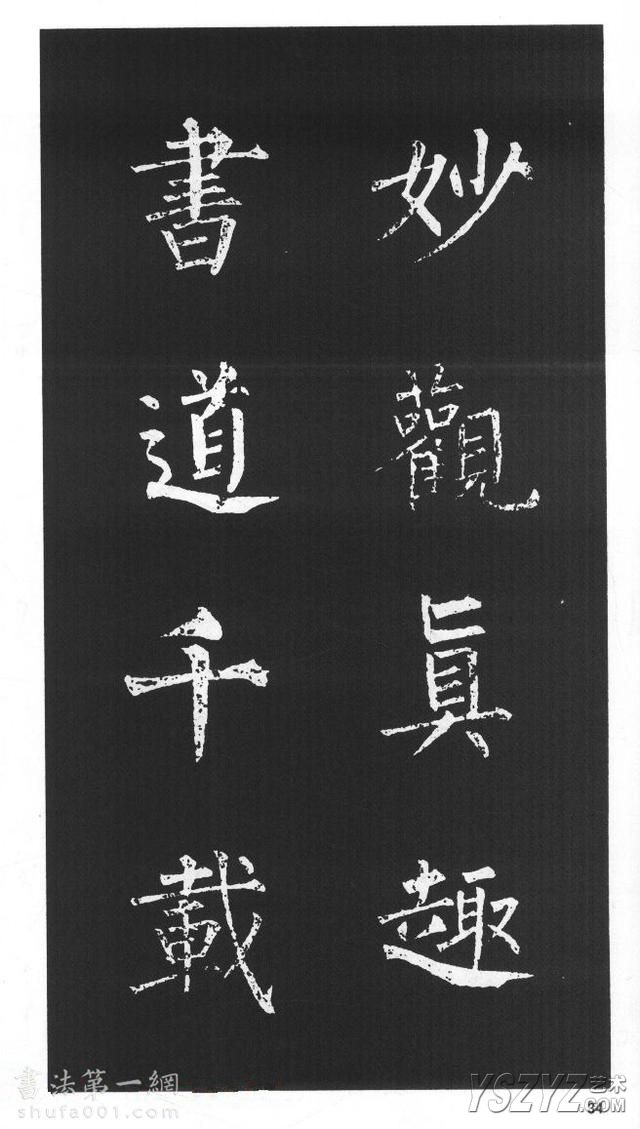 妙觀眞趣
書道千載
書法第一網
shufa001.com
YSZYZ艺术
.COM
34